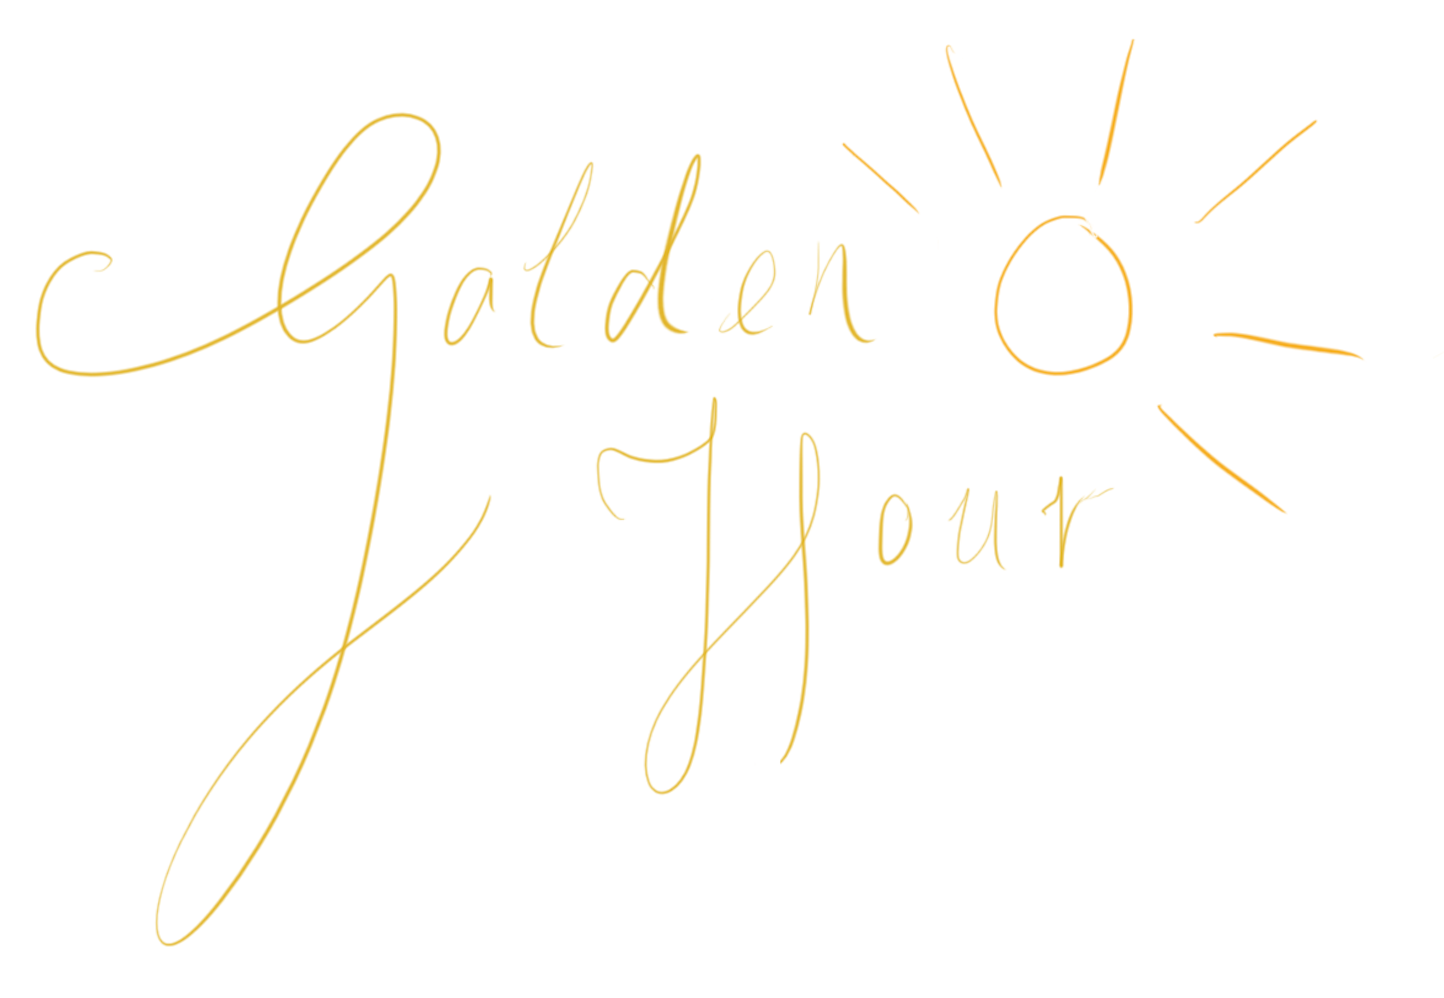 Golden
Hour